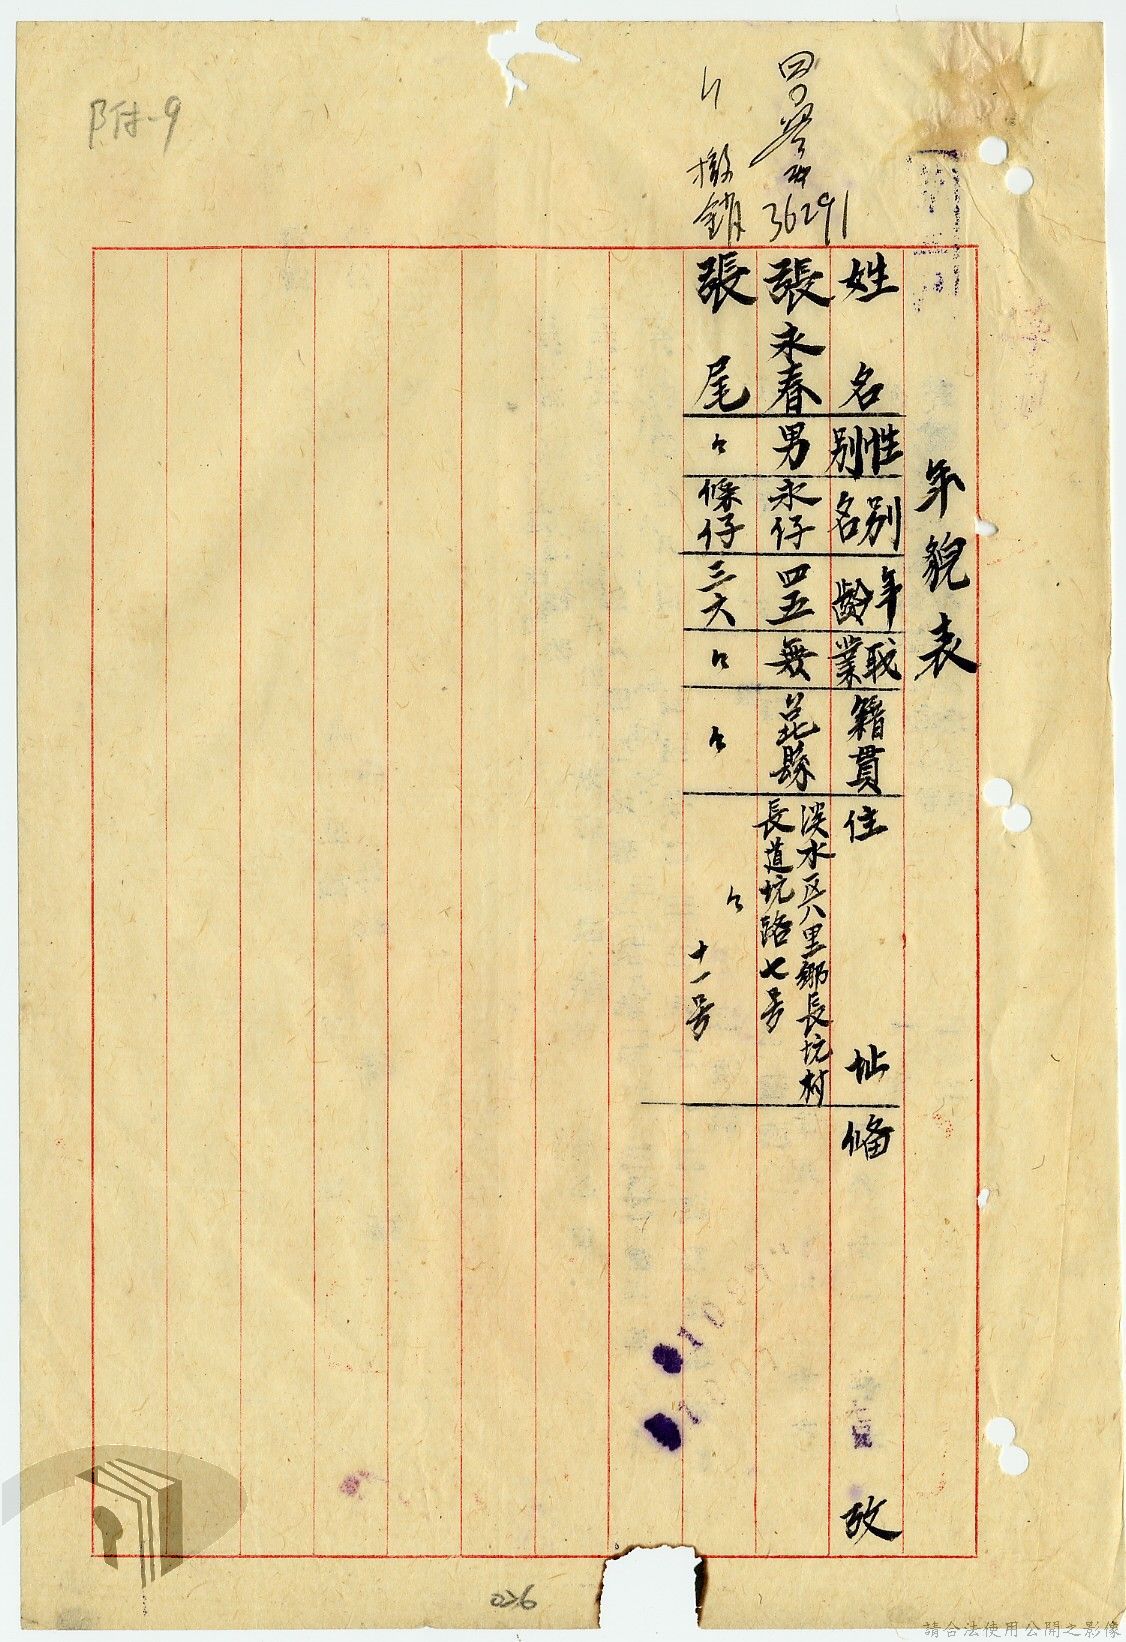 年貌表
姓名 性別 別名 年齡 職業 籍貫 住址 偹攷
張永春 男 永仔 四五 無 台北縣 淡水区八里鄉長坑村
長道坑路七号
張尾 〃 條仔 三六 〃 〃 〃 十一号
36291
〃 撤銷
附-9
026
請合法使用公開之影像